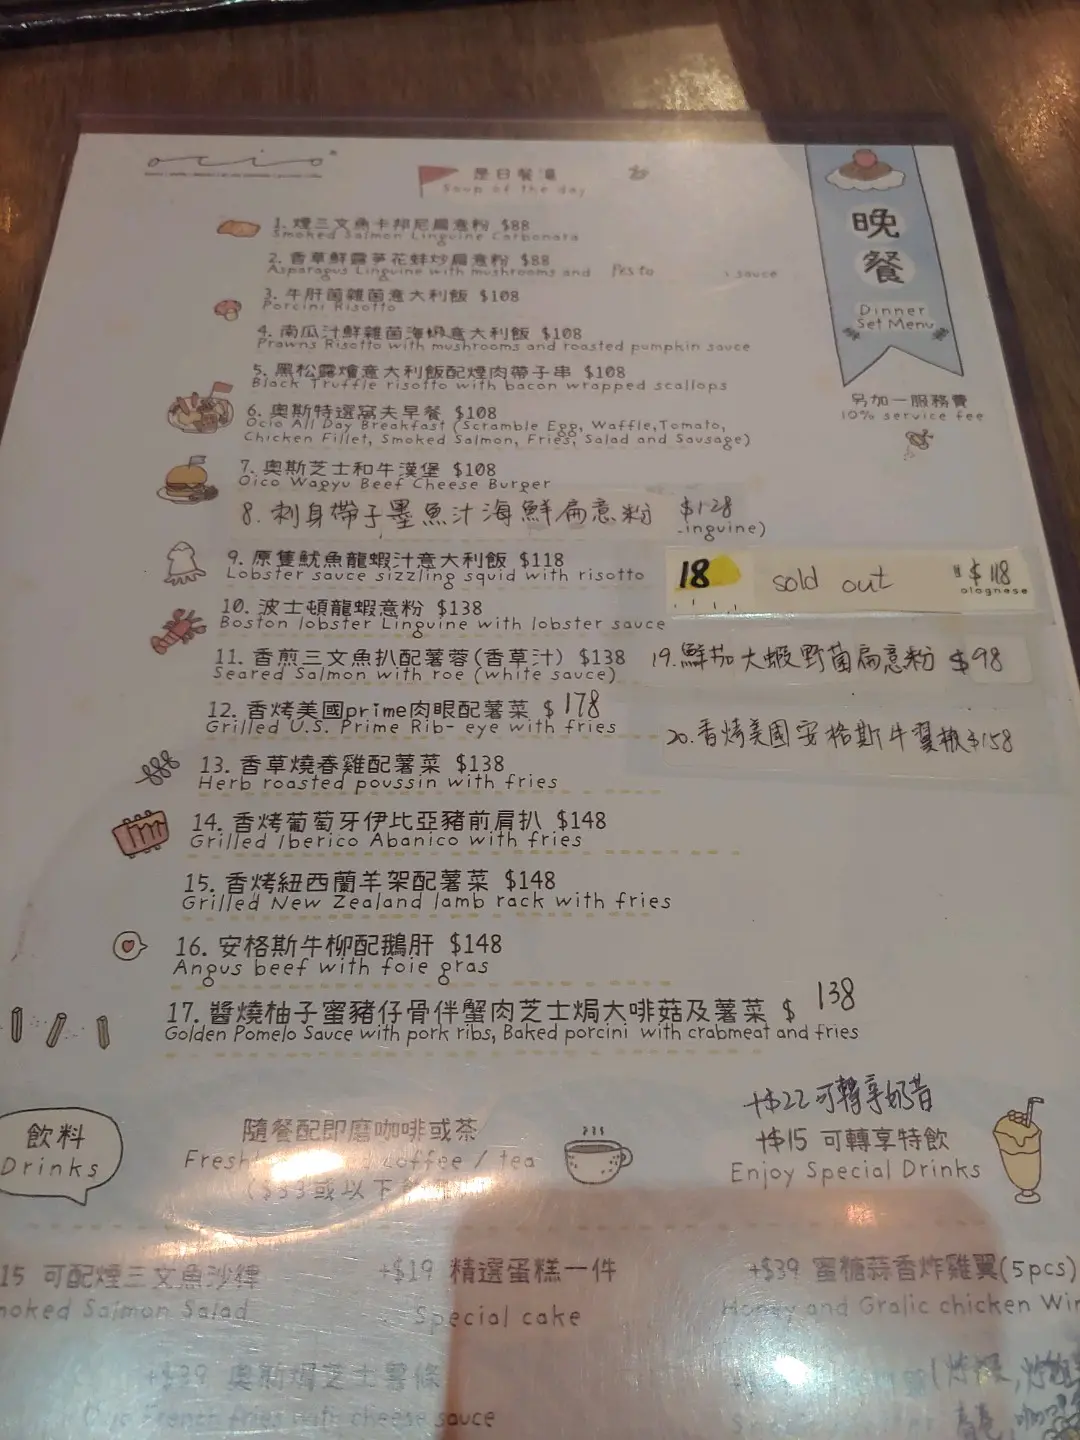 ocio
是日餐湯
Soup of the day
晚餐
Dinner
Set Menu
另加一服務費
10% service fee
1. 煙三文魚卡邦尼扁意粉 $88
Smoked Salmon Linguine Carbonara
2. 香草鮮露筍花蚌炒扁意粉 $88
Asparagus Linguine with mushrooms and Pesto sauce
3. 牛肝菌雜菌意大利飯 $108
Porcini Risotto
4. 南瓜汁鮮雜菌海蝦意大利飯 $108
Prawns Risotto with mushrooms and roasted pumpkin sauce
5. 黑松露燴意大利飯配煙肉帶子串 $108
Black Truffle risotto with bacon wrapped scallops
6. 奧斯特選窩夫早餐 $108
Ocio All Day Breakfast (Scramble Egg, Waffle,Tomato,
Chicken Fillet, Smoked Salmon, Fries, Salad and Sausage)
7. 奧斯芝士和牛漢堡 $108
Oico Wagyu Beef Cheese Burger
8. 刺身帶子墨魚汁海鮮扁意粉 $128
inguine)
9. 原隻魷魚龍蝦汁意大利飯 $118
Lobster sauce sizzling squid with risotto
10. 波士頓龍蝦意粉 $138
Boston lobster Linguine with lobster sauce
11. 香煎三文魚扒配薯蓉(香草汁) $138
Seared Salmon with roe (white sauce)
12. 香烤美國prime肉眼配薯菜 $ 178
Grilled U.S. Prime Rib- eye with fries
13. 香草燒春雞配薯菜 $138
Herb roasted poussin with fries
14. 香烤葡萄牙伊比亞豬前肩扒 $148
Grilled Iberico Abanico with fries
15. 香烤紐西蘭羊架配薯菜 $148
Grilled New Zealand lamb rack with fries
16. 安格斯牛柳配鵝肝 $148
Angus beef with foie gras
17. 醬燒柚子蜜豬仔骨伴蟹肉芝士焗大啡菇及薯菜 $ 138
Golden Pomelo Sauce with pork ribs, Baked porcini with crabmeat and fries
18 sold out $118
olognese
19. 鮮茄大蝦野菌扁意粉 $98
20. 香烤美國安格斯牛翼板 $158
飲料
Drinks
隨餐配即磨咖啡或茶
coffee / tea
+$22 可轉享奶昔
+$15 可轉享特飲
Enjoy Special Drinks
15 可配煙三文魚沙律
moked Salmon Salad
+$19 精選蛋糕一件
Special cake
+$39 蜜糖蒜香炸雞翼(5pcs)
Honey and Gralic chicken Win
+$39 奧斯焗芝士薯條
French fries with cheese sauce